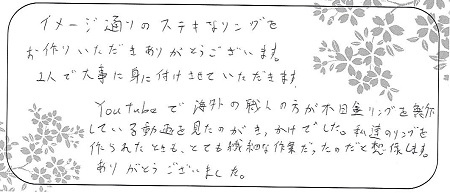 イメージ通りのステキなリングを
お作りいただきありがとうございます。
2人で大事に身に付けさせていただきます
Youtubeで海外の職人の方が木目金リングを製作
している動画を見たのがきっかけでした。私達のリングを
作られたときも、とても繊細な作業だったのだと想像します。
ありがとうございました。